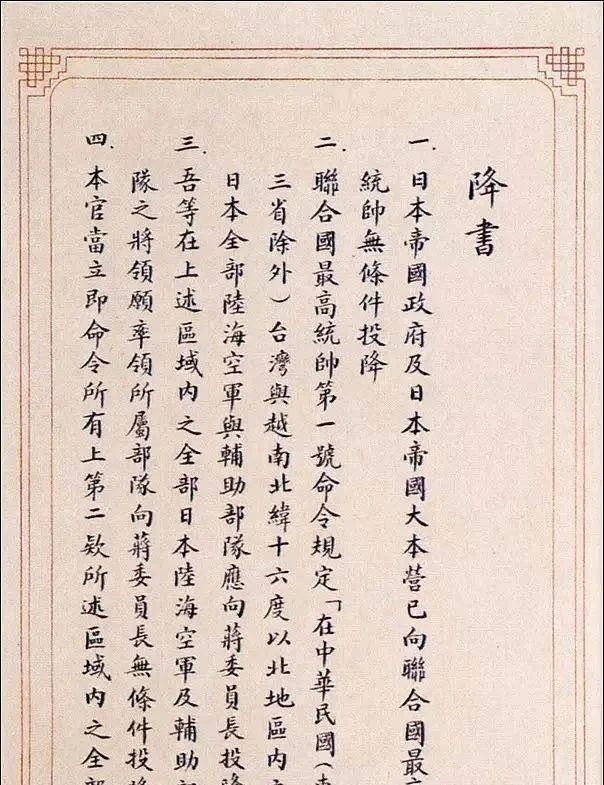 降書
一.日本帝國政府及日本帝國大本營已向聯合國最高
統帥無條件投降
二.聯合國最高統帥第一號命令規定「在中華民國(東
三省除外)台灣與越南北緯十六度以北地區內之
日本全部陸海空軍與輔助部隊應向蔣委員長投降
三.吾等在上述區域內之全部日本陸海空軍及輔助部
隊之將領願率領所屬部隊向蔣委員長無條件投降
四.本官當立即命令所有上第二欵所述區域內之全部